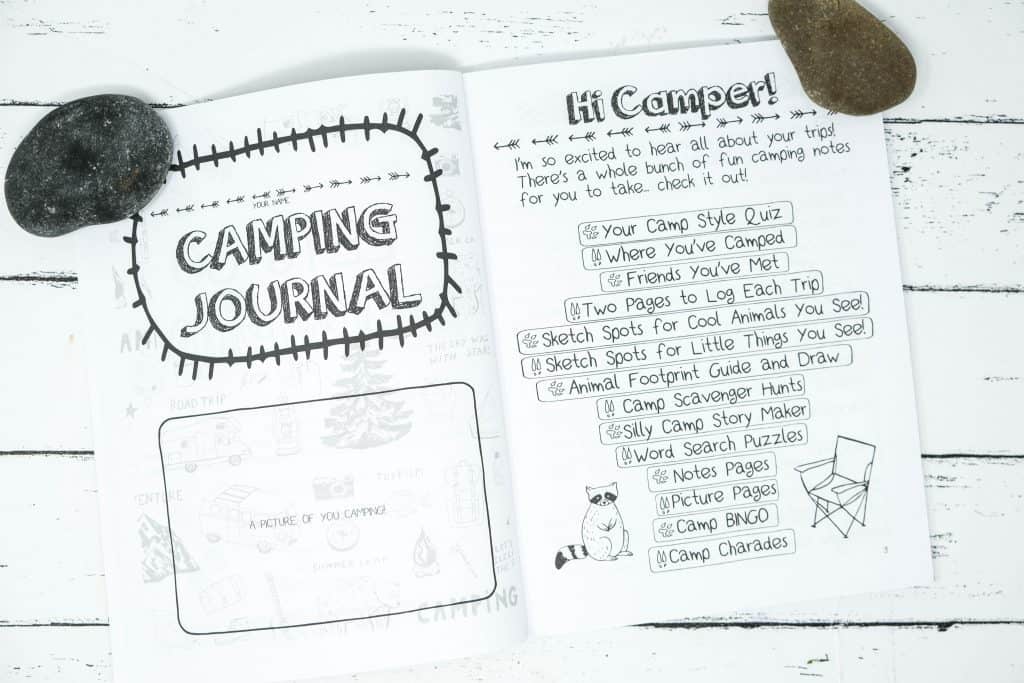 YOUR NAME
CAMPING
JOURNAL
THE SKY WAS
ROAD TRIP
A PICTURE OF YOU CAMPING!
SUMMER CAMP
CAMPING
Hi Camper!
I'm so excited to hear all about your trips!
There's a whole bunch of fun camping notes
for you to take... check it out!
Your Camp Style Quiz
Where You've Camped
Friends You've Met
Two Pages to Log Each Trip
Sketch Spots for Cool Animals You See!
Sketch Spots for Little Things You See!
Animal Footprint Guide and Draw
Camp Scavenger Hunts
Silly Camp Story Maker
Word Search Puzzles
Notes Pages
Picture Pages
Camp BINGO
Camp Charades
3